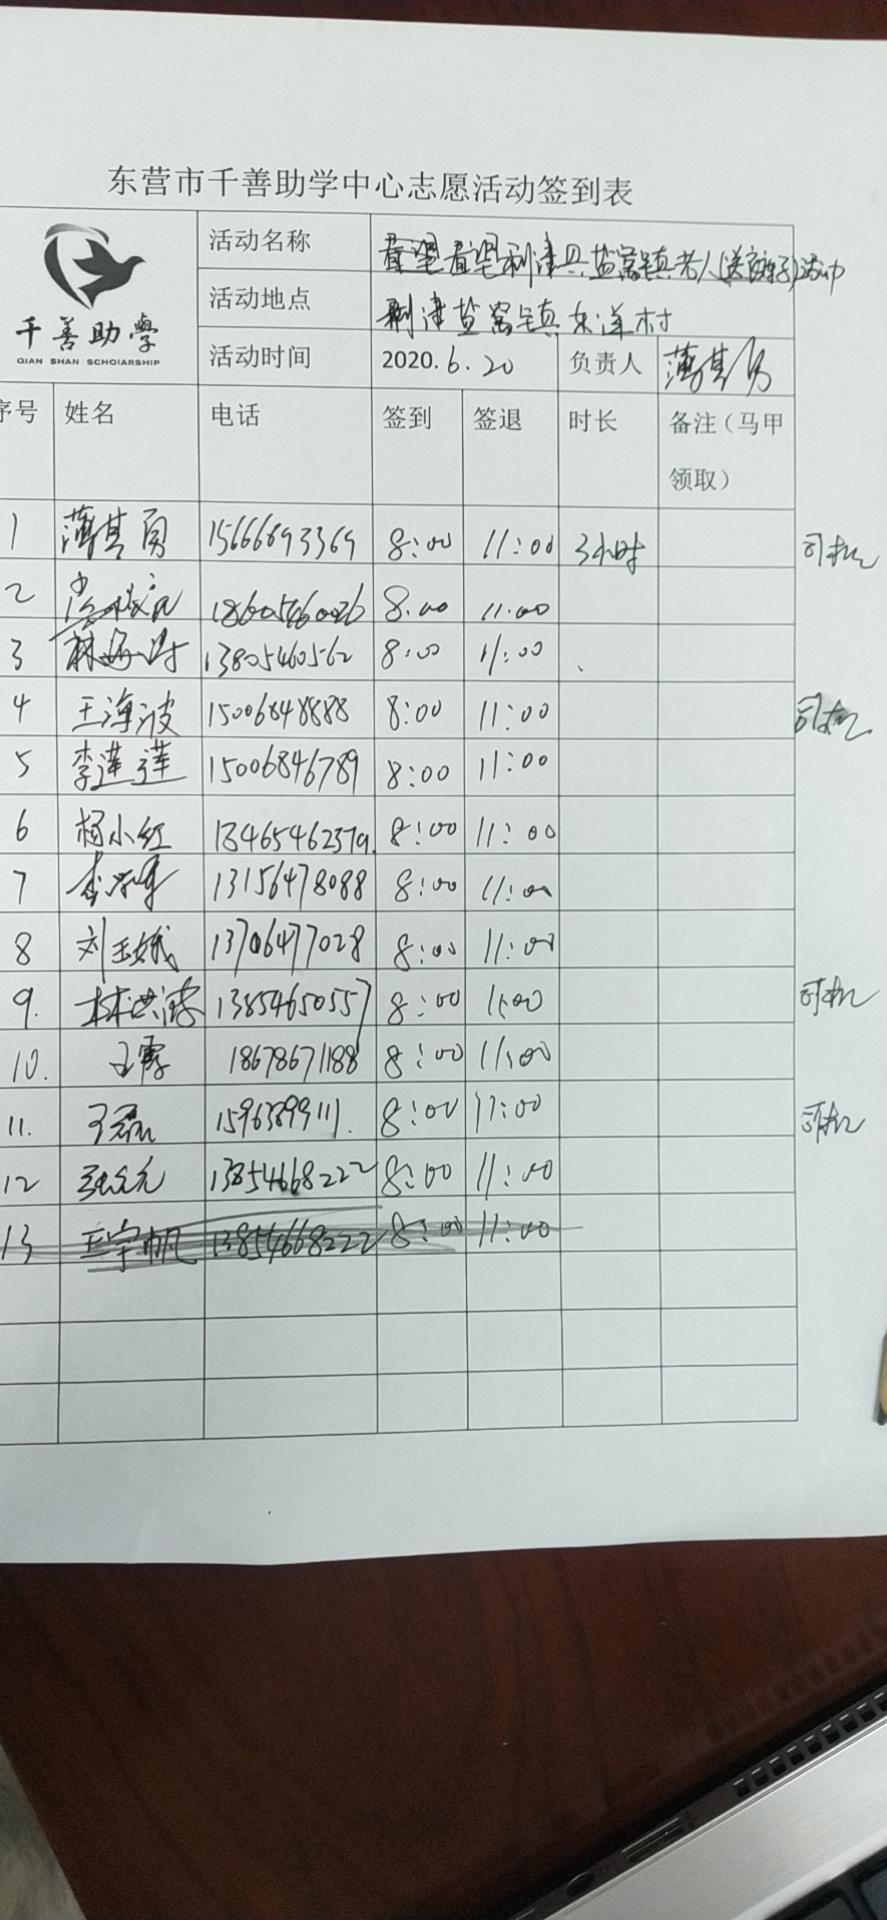 东营市千善助学中心志愿活动签到表
千善助學
QIAN SHAN SCHOlARSHIP
活动名称 看望看望利津县盐窝镇老人(送粽子)活动
活动地点 利津盐窝镇 村
活动时间 2020.6.20 负责人 薄其
序号 姓名 电话 签到 签退 时长 备注（马甲
领取）
1 薄其 15666893369 8:00 11:00 3小时 司机
2 18605460026 8:00 11:00
3 林 13805460562 8:00 11:00
4 王海波 15006848888 8:00 11:00 司机
5 李莲莲 15006846789 8:00 11:00
6 杨小红 13465462379. 8:00 11:00
7 李 13156478088 8:00 11:00
8 刘玉娥 13706477028 8:00 11:00
9. 林洪涛 13854650557 8:00 11:00 司机
10. 王霞 18678671188 8:00 11:00
11. 王磊 15963899111. 8:00 11:00 司机
12 13854668222 8:00 11:00
13 王宇帆 13854668222 8:00 11:00